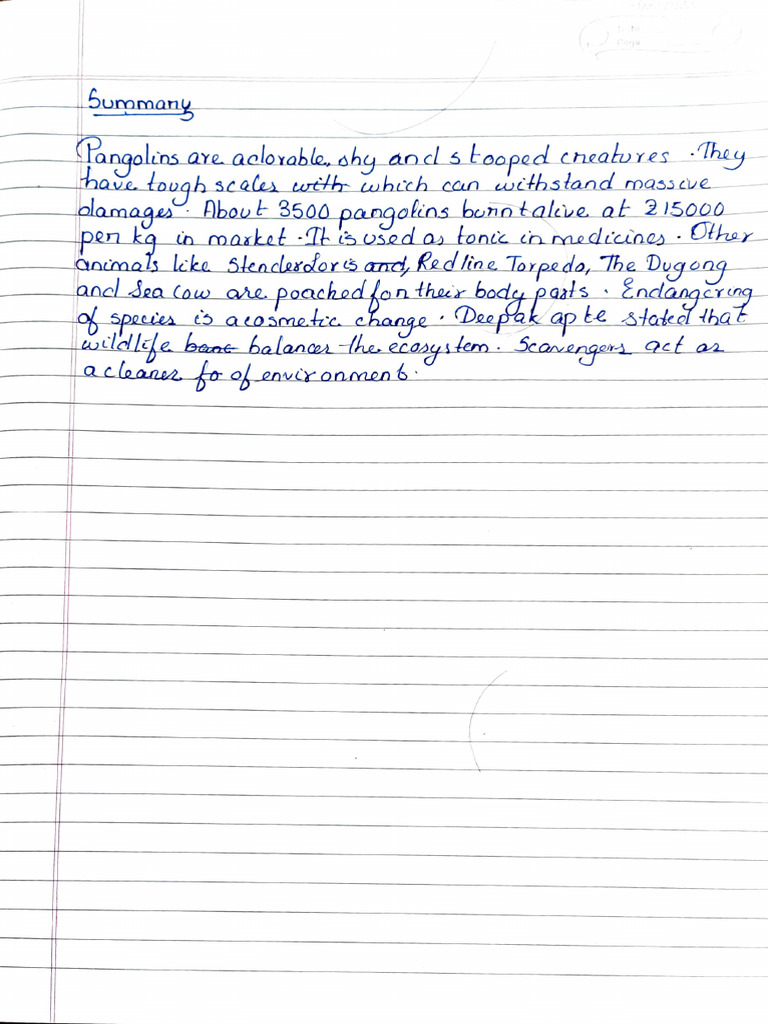 Summary
Pangolins are adorable, shy and stooped creatures. They
have tough scales with which can withstand massive
damages. About 3500 pangolins burnt alive at ₹15000
per kg in market. It is used as tonic in medicines. Other
animals like Slenderloris and, Redline Torpedo, The Dugong
and Sea Cow are poached for their body parts. Endangering
of species is a cosmetic change. Deepak apte stated that
wildlife balances the ecosystem. Scavengers act as
a cleaner fo of environment.